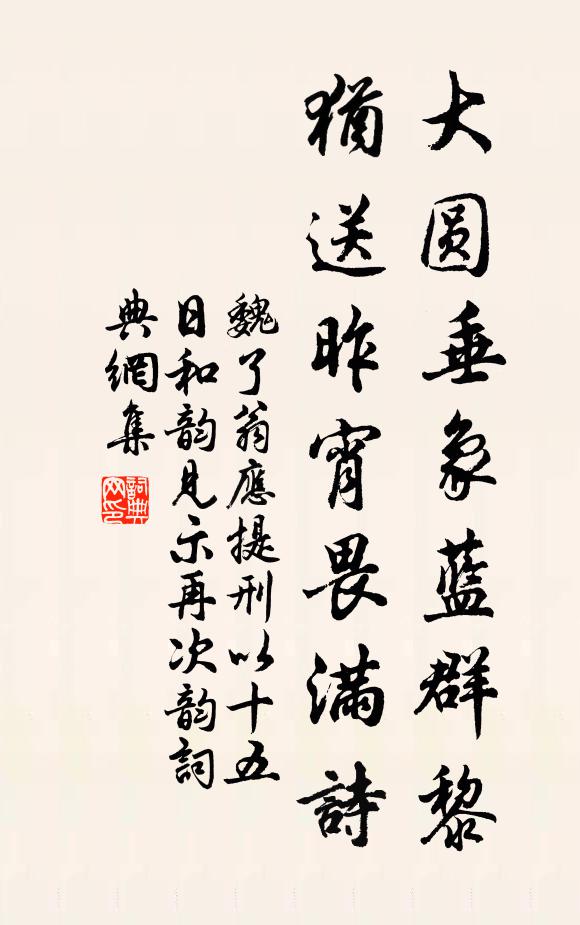 大圆垂象藍群黎
猶送昨宵畏滿詩
魏了翁應提刑以十五
日和韵見示再次韵詞
典網集
詞典
网印